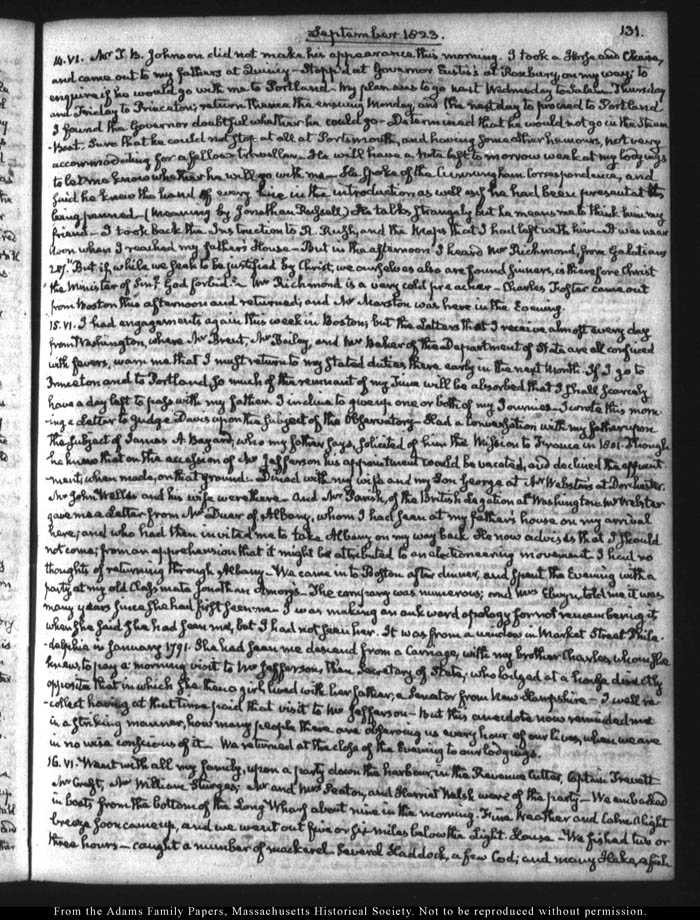 September 1823.
131.
14. VI. Mr. T. B. Johnson did not make his appearance this morning. I took a Horse and Chaise,
and came out to my father's at Quincy – Stopp'd at Governor Eustis's at Roxbury on my way; to
enquire if he would go with me to Portland – My plan was to go next Wednesday to Salem, Thursday
and Friday to Princeton; return thence the ensuing Monday, and the next day to proceed to Portland.
I found the Governor doubtful whether he could go – Determined that he would not go in the Steam
-boat. Sure that he could not stop at all at Portsmouth, and having some other humours, not very
accommodating for a fellow-traveller – He will have a Note left tomorrow week at my lodgings
to let me know whether he will go with me – He spoke of the Cunningham Correspondence, and
said he knew the hand of every line in the introduction as well as if he had been present at its
being penned – (Meaning by Jonathan Russell) He talks strangely but he means me to think him my
friend – I took back the Instruction to R. Rush, and the Maps that I had left with him – It was near
noon when I reached my father's House – But in the afternoon I heard Mr. Richmond, from Galatians
2.17. "But if while we seek to be justified by Christ, we ourselves also are found sinners, is therefore Christ
"the Minister of Sin? God forbid." – Mr. Richmond is a very cold preacher – Charles Foster came out
from Boston this afternoon and returned; and Mr. Marston was here in the Evening.
15. VI. I had engagements again this week in Boston; but the Letters that I receive almost every day
from Washington, where Mr. Brent, Mr. Bailey, and Mr. Baker of the Department of State are all confined
with fevers, warn me that I must return to my stated duties there early in the next Month. If I go to
Princeton and to Portland so much of the remnant of my time will be absorbed that I shall scarcely
have a day left to pass with my father. I incline to give up one or both of my Journies – I wrote this morn
-ing a letter to Judge Davis upon the subject of the Observatory – Had a conversation with my father upon
the subject of James A. Bayard, who my father says, solicited of him the Mission to France in 1801. Though
he knew that on the accession of Mr. Jefferson his appointment would be vacated, and declined the appoint
-ment, when made, on that ground – Dined with my wife and my Son George at Mr. Webster's at Dorchester.
Mr. John Welles and his wife were there – and Mr. Parish, of the British legation at Washington. Mr. Webster
gave me a letter from Mr. Duer of Albany, whom I had seen at my father's house on my arrival
here; and who had then invited me to take Albany on my way back. He now advises that I should
not come; from an apprehension that it might be attributed to an electioneering movement. I had no
thoughts of returning through Albany – We came in to Boston after dinner, and spent the Evening with a
party at my old Classmate Jonathan Amory's. The company was numerous; and Mrs. Elwyn, told me it was
many years since she had first seen me – I was making an awkward apology for not remembering it
when she said she had seen me, but I had not seen her. It was from a window in Market Street Phila
-delphia in January 1791. She had seen me descend from a Carriage, with my brother Charles, whom she
knew, to pay a morning visit to Mr. Jefferson, then Secretary of State, who lodged at a house directly
opposite that in which she then a girl lived with her father, a Senator from New Hampshire – I well re
-collect having at that time paid that visit to Mr. Jefferson – But this anecdote now reminded me
in a striking manner, how many people there are observing us every hour of our lives, when we are
in no wise conscious of it – We returned at the close of the Evening to our lodgings.
16. VI. Went with all my family, upon a party down the harbour, in the Revenue Cutter, Captain Trevett
Mr. Craft, Mr. William Sturges, Mr. and Mrs. Seaton, and Harriet Welsh were of the party – We embarked
in boats from the bottom of the Long Wharf about nine in the morning. Fine Weather and Calm. A light
breeze soon came up, and we went out five or six miles below the Light House – We fished two or
three hours – caught a number of mackerel – Several Haddock, a few Cod; and many Hake, a fish
From the Adams Family Papers, Massachusetts Historical Society. Not to be reproduced without permission.